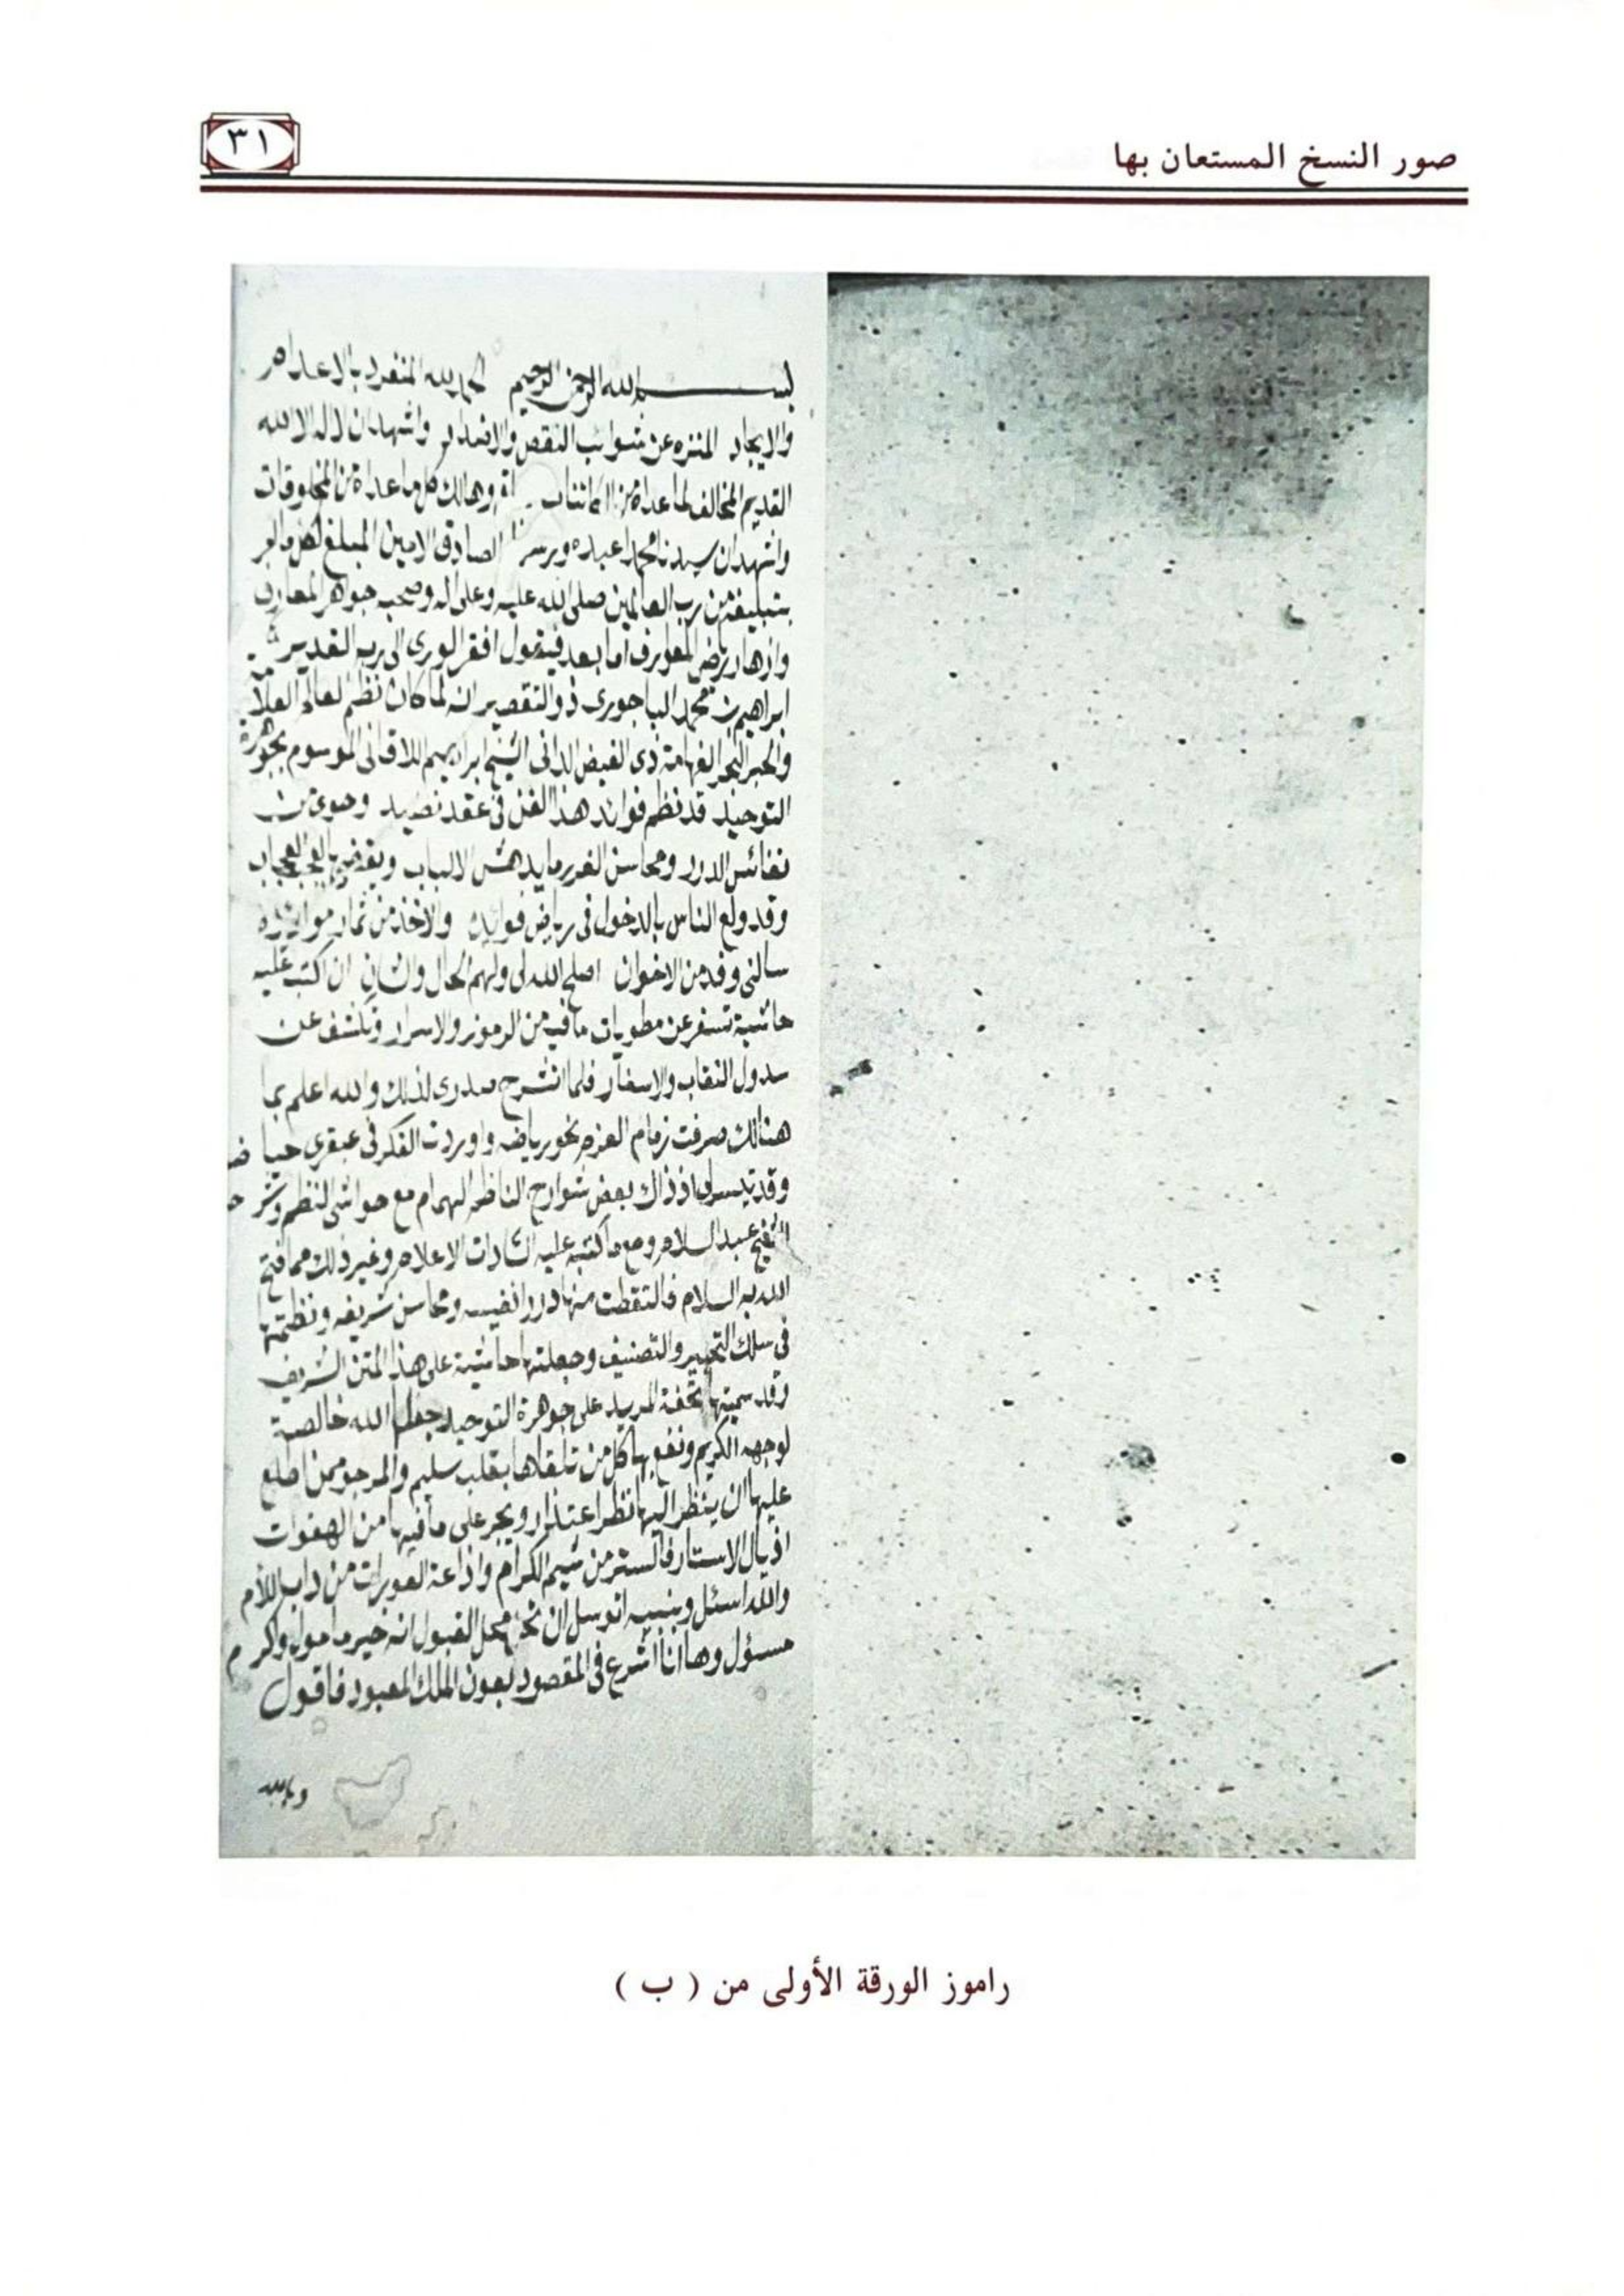 صور النسخ المستعان بها
٣١
بسم الله الرحمن الرحيم الحمد لله المنفرد بالاعدام
والايجاد المنزه عن شوائب النقص والاضداد واشهد ان لا اله الا الله
القديم المخالف لما عداه من الكائنات وهالك كل ما عداه من المخلوقات
واشهدان سيدنا محمدا عبده ورسوله الصادق الامين المبلغ لكل ما امر
بتبليغه من رب العالمين صلى الله عليه وعلى اله وصحبه جواهر المعارف
وازهار رياض اما بعد فيقول افقر الورى الى ربه القدير
ابراهيم بن محمد الباجورى ذو التقصير انه لما كان نظم العالم العلامة
والحبر البحر الفهامة ذى الفيض الدانى الشيخ ابراهيم اللاقانى الموسوم بجوهرة
التوحيد قد نظم فوائد هذا الفن فى عقد نضيد وحوى من
نفائس الدرر ومحاسن الغرر ما يدهش الالباب ويقضى بالعجب العجاب
وقد ولع الناس بالدخول فى رياض فوائده والاخذ من ثمار موائده
سالنى وفد من الاخوان اصلح الله لى ولهم الحال والشان ان اكتب عليه
حاشية تسفر عن مطويات ما فيه من الرموز والاسرار وتكشف عن
سدول النقاب والاسفار فلما انشرح صدرى لذلك والله اعلم بما
هنالك صرفت زمام العزم نحو رياضه واوردت الفكر فى عبقرى حياضه
وقد تيسر لى اذ ذاك بعض شوارح الناظم الهمام مع حواشى النظم وشرح
الشيخ عبد السلام ومع ما كتبه عليه السادات الاعلام وغير ذلك مما فتح
الله به السلام فالتقطت منها دررا نفيسه ومحاسن شريفه ونظمتها
فى سلك التحبير والتصنيف وجعلتها حاشية على هذا المتن الشريف
وقد سميتها تحفة المريد على جوهرة التوحيد جعلها الله خالصة
لوجهه الكريم ونفع بها كل من تلقاها بقلب سليم والمرجو ممن اطلع
عليها ان ينظر اليها نظر اعتذار ويجر على ما فيها من الهفوات
اذيال الاستار فالستر من شيم الكرام واذاعة العورات من داب اللأم
والله اسئل وبنبيه اتوسل ان تحل محل القبول انه خير مامول واكرم
مسؤل وها انا اشرع فى المقصود بعون الملك المعبود فاقول
راموز الورقة الأولى من ( ب )